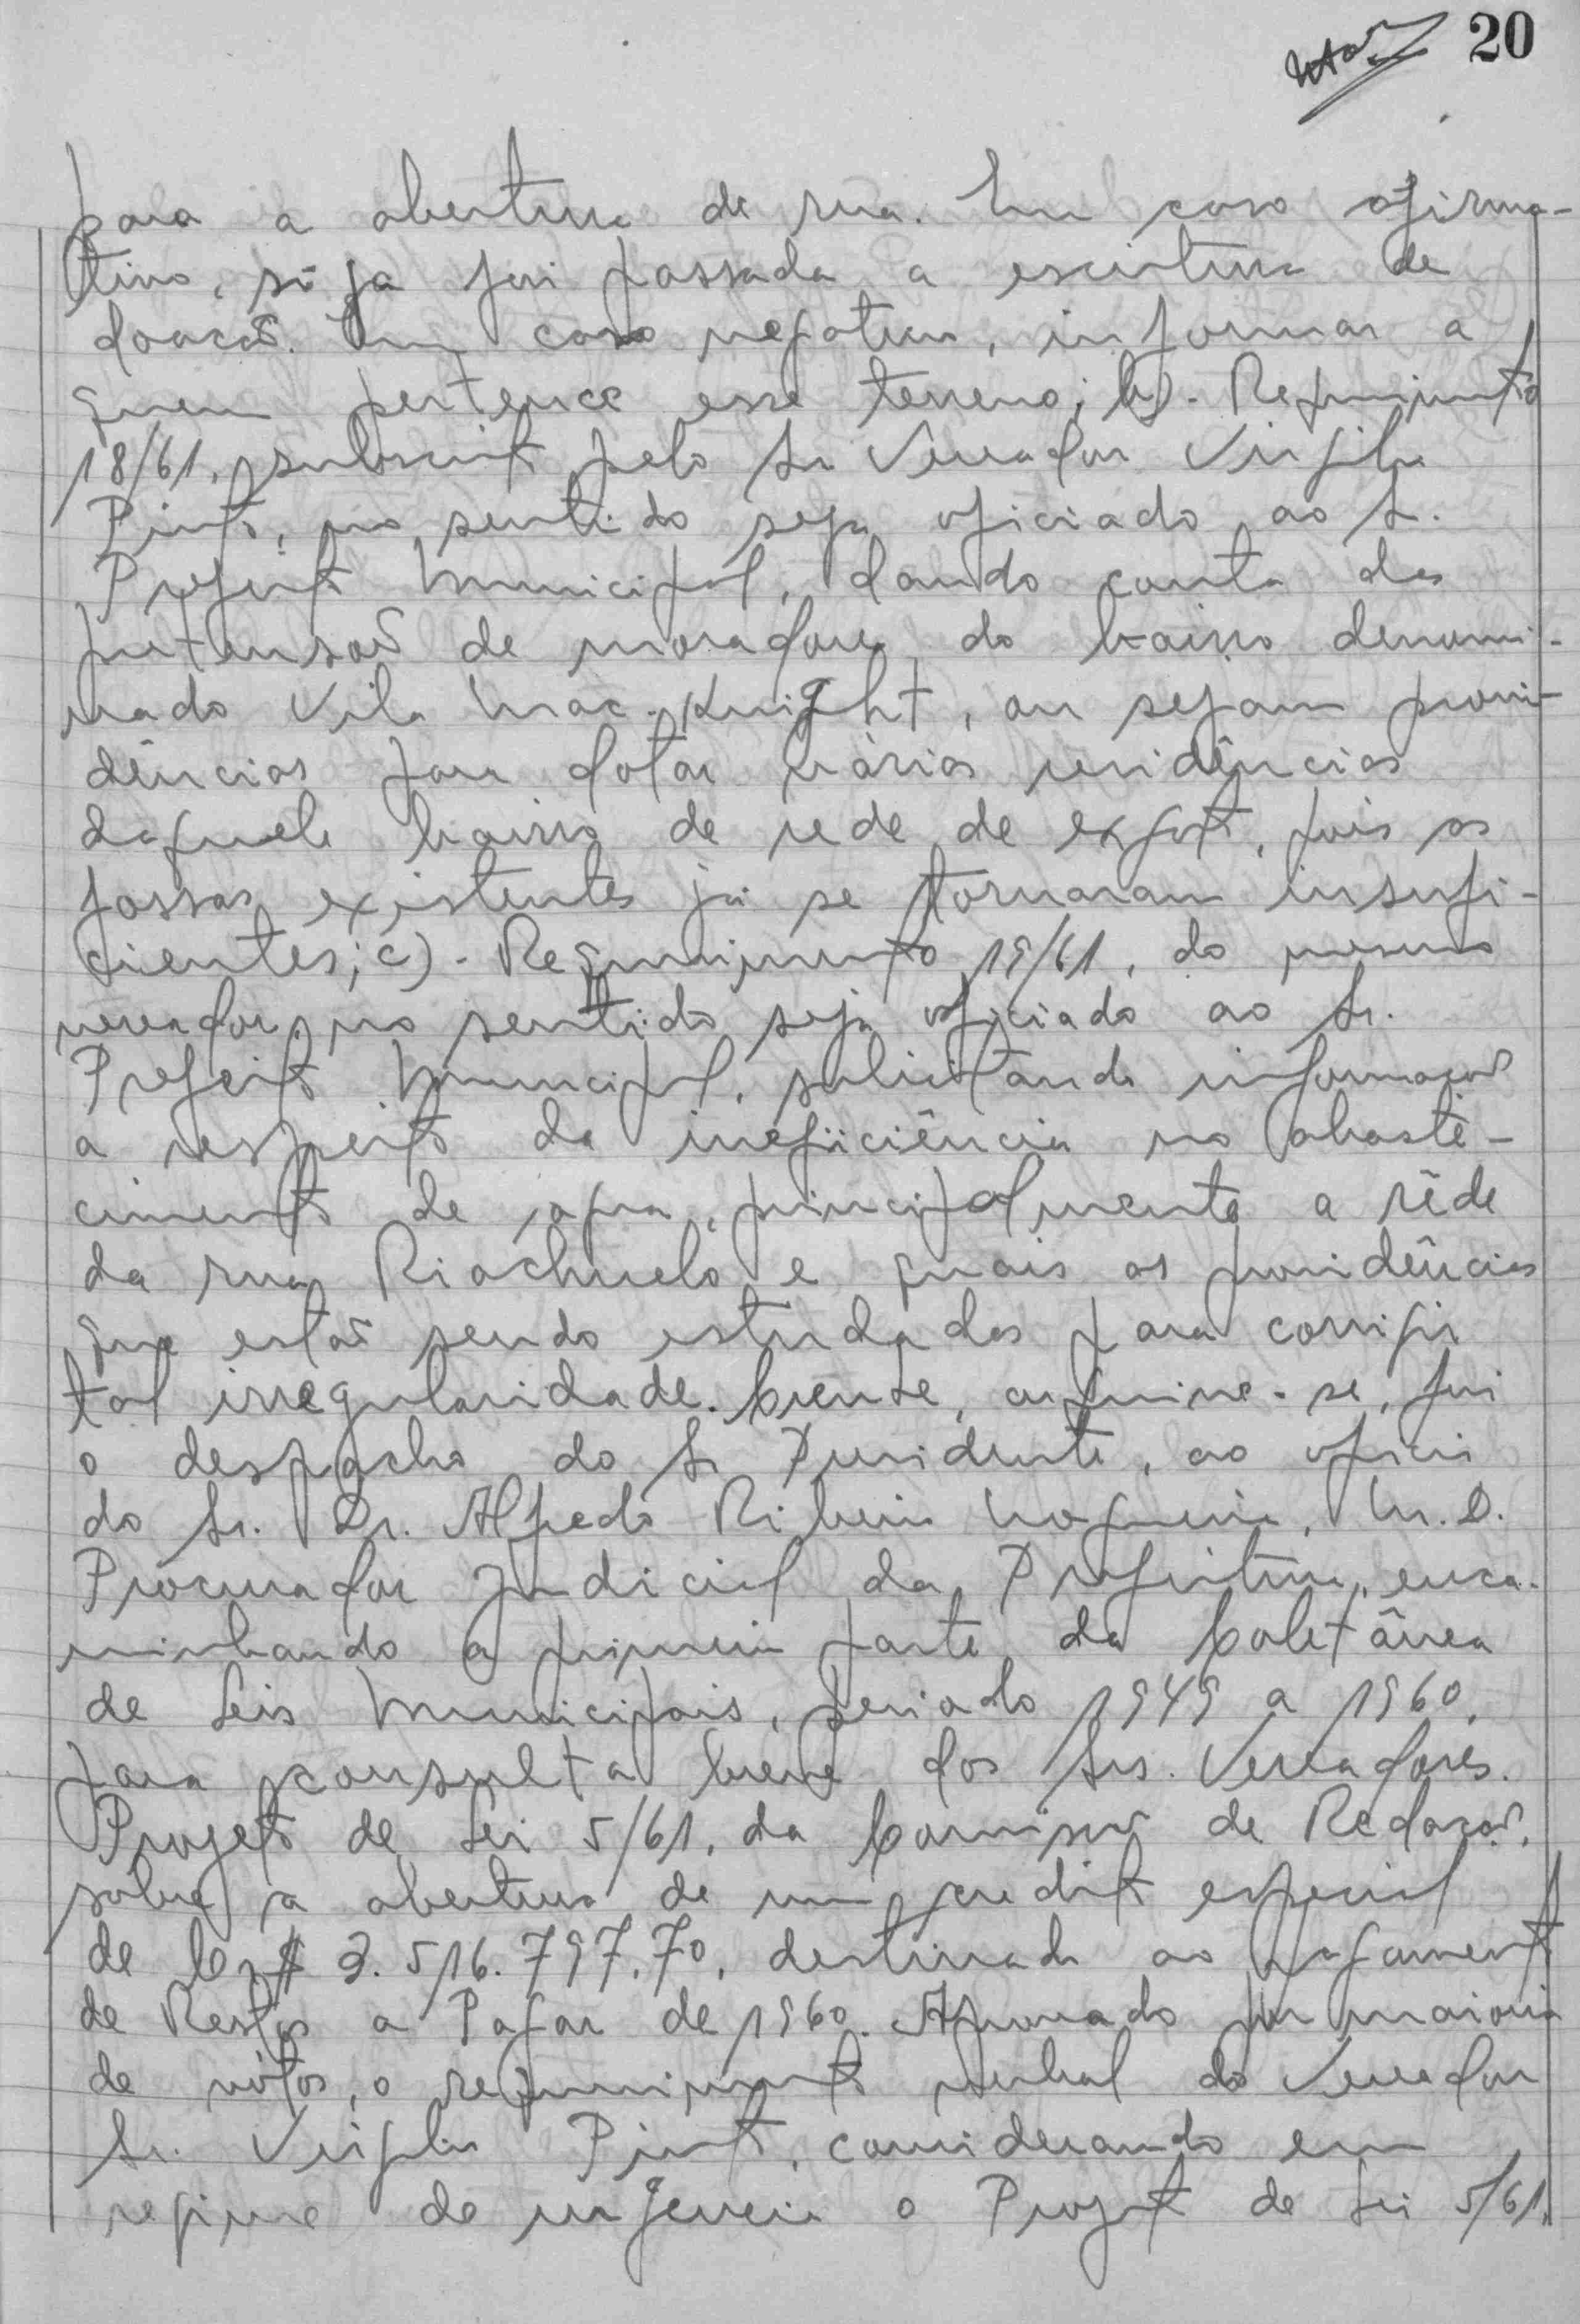 20
para a abertura de rua. Em caso afirma-
tivo, si já foi passada a escritura de
doação. Em caso negativo, informar a
quem pertence esse terreno; b)- Requerimento
18/61, subscrito pelo Sr Vereador Virgilio
Pinto, no sentido seja oficiado ao Sr.
Prefeito Municipal, dando conta da
pretensão de moradores do bairro denomi-
nado Vila Mac-Knight, ou sejam provi-
dências para dotar várias residências
daquele bairro de rede de exgoto, pois as
fossas existentes já se tornaram insufi-
cientes; c)- Requerimento 19/61, do mesmo
vereador, no sentido seja oficiado ao Sr.
Prefeito Municipal, solicitando informação
a respeito da ineficiência no abaste-
cimento de água, principalmente a rêde
da rua Riachuelo e quais as providências
que estão sendo estudadas para corrigir
tal irregularidade. Ciente, arquive-se, foi
o despacho do Sr Presidente, ao oficio
do Sr. Dr. Alfredo Ribeiro Nogueira, M.D.
Procurador Judicial da Prefeitura, enca-
minhando a primeira parte da Coletânea
de Leis Municipais, periodo 1949 a 1960,
para consulta breve dos Srs. Vereadores.
Projeto de Lei 5/61, da Comissão de Redação,
sobre a abertura de um credito especial
de Cr$ 3.516.797,70, destinado ao pagamento
de Restos a Pagar de 1960. Aprovado por maioria
de vótos, o requerimento verbal do Vereador
Sr. Virgilio Pinto, considerando em
regime de urgencia o Projeto de Lei 5/61,